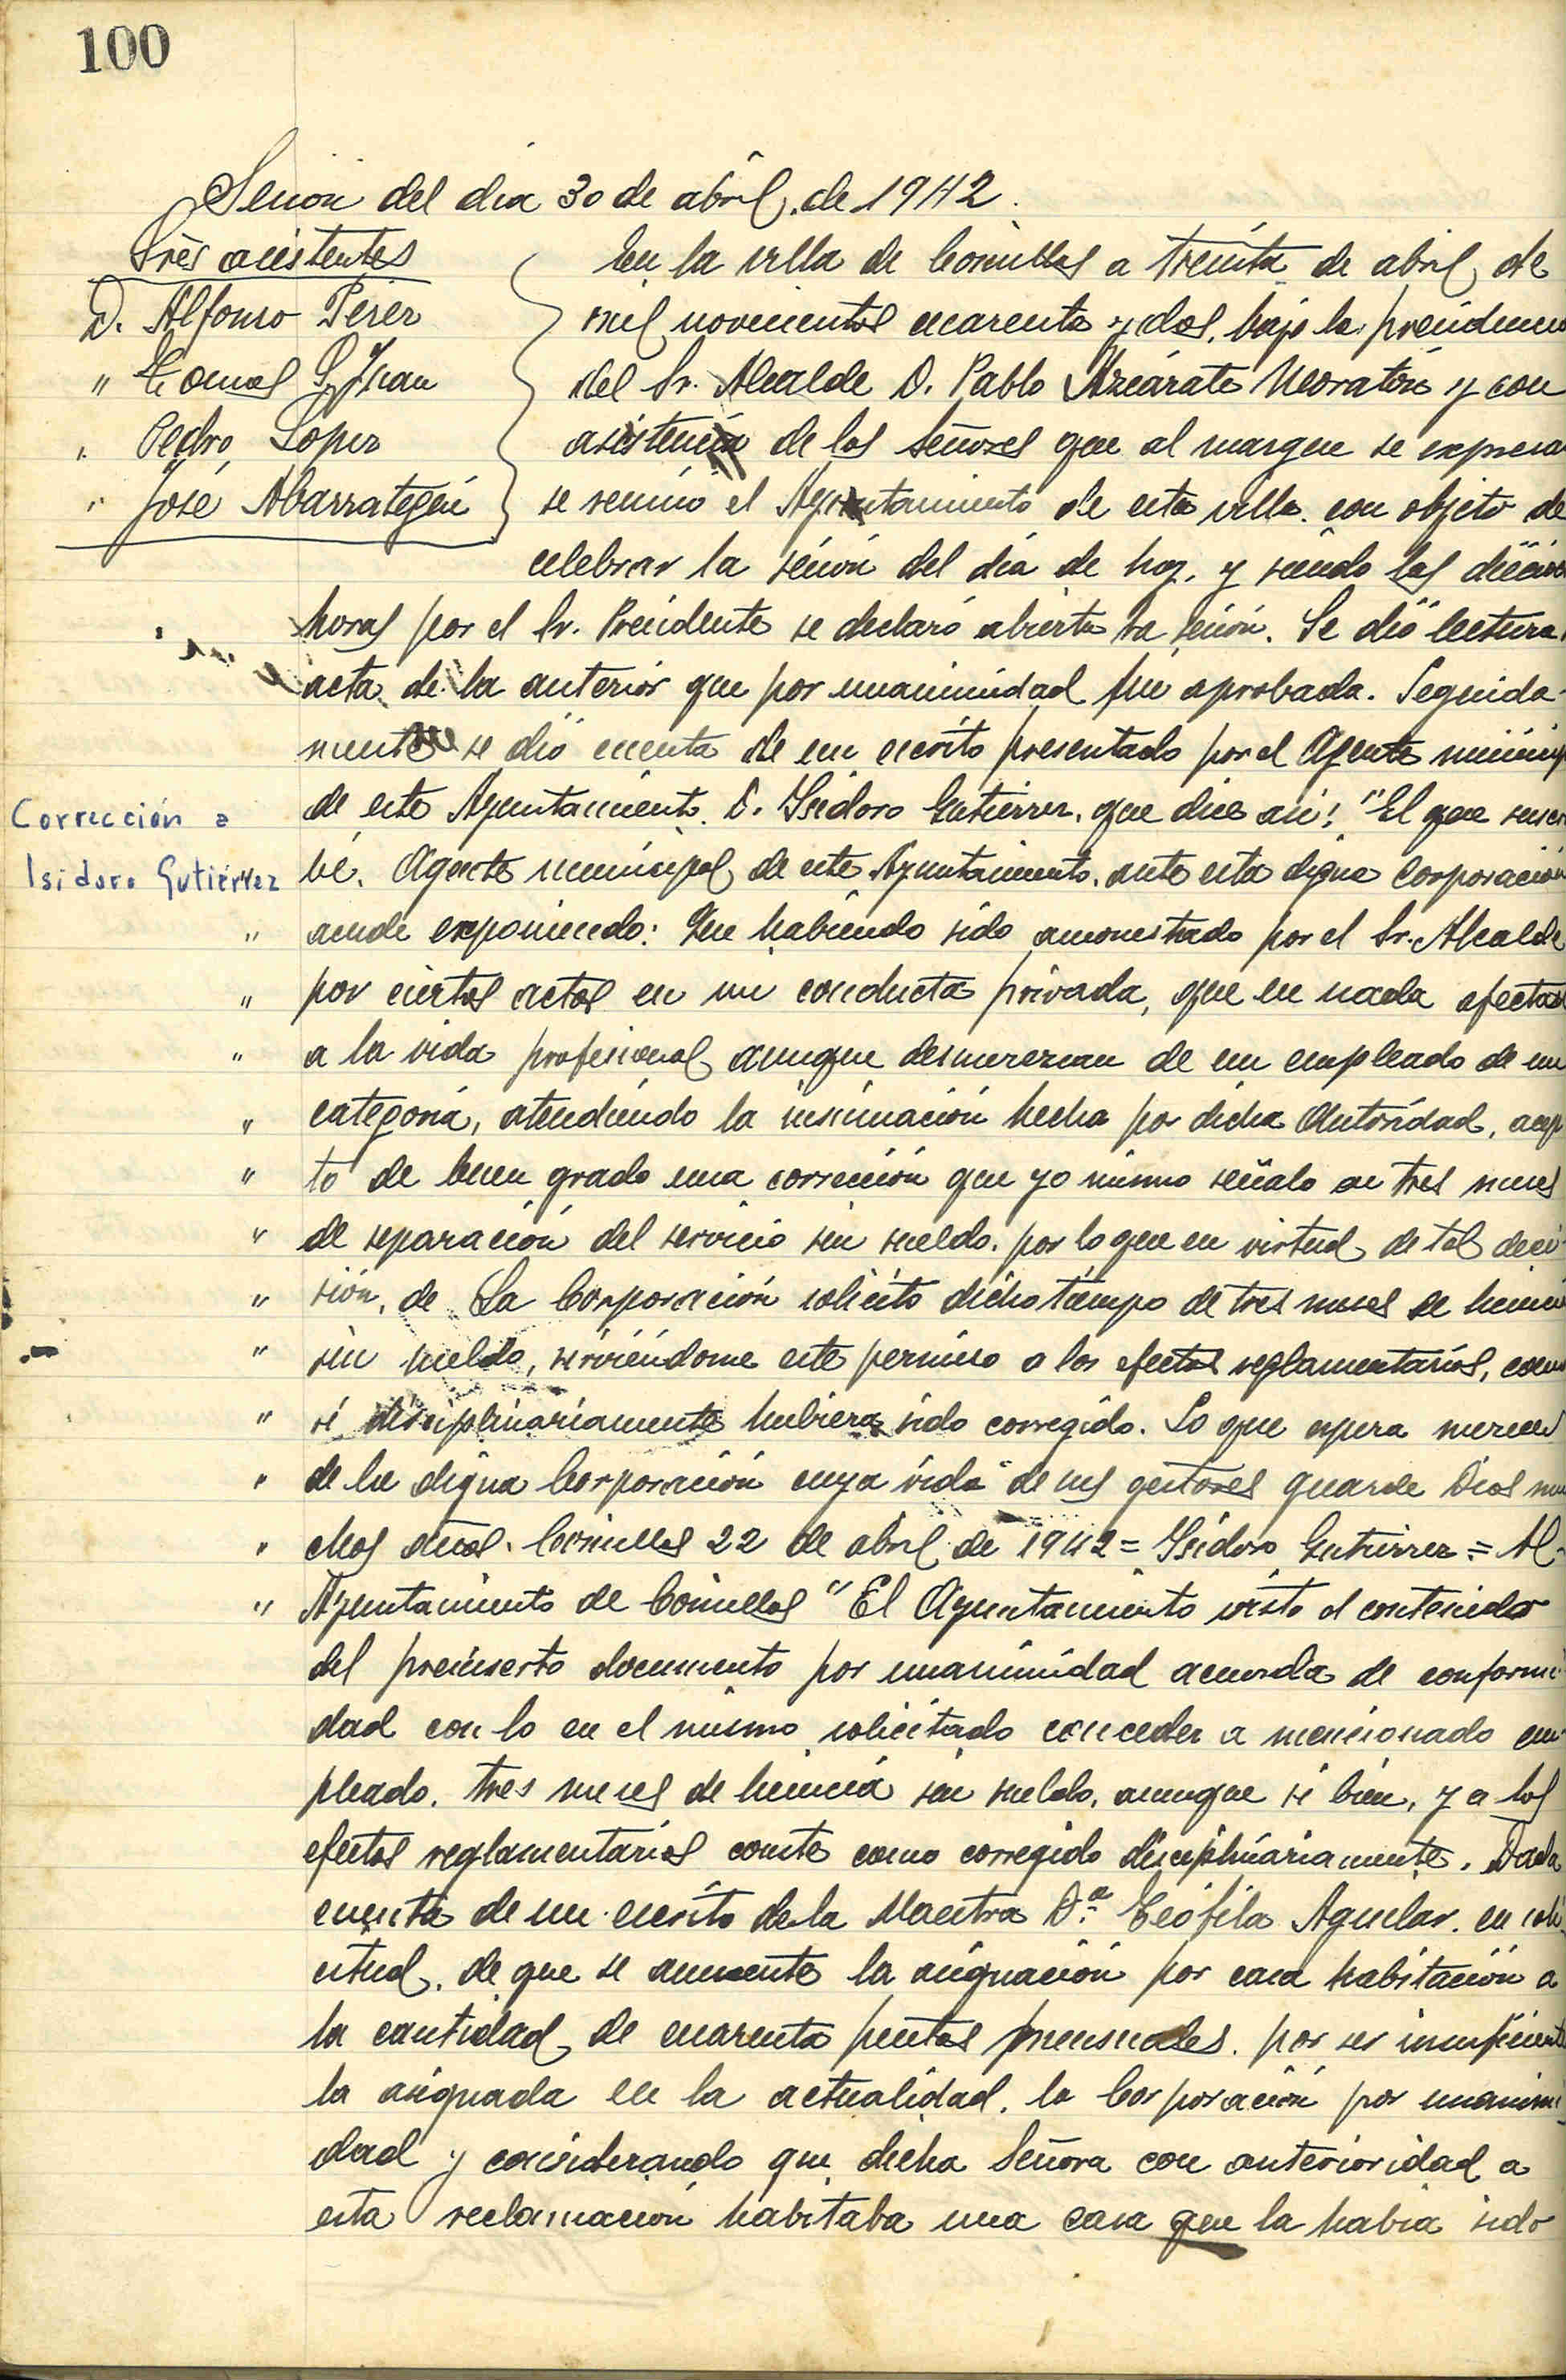 100
Sesión del día 30 de abril de 1942.
Sres asistentes
D. Alfonso Pérez
" Tomás S. Juan
" Pedro López
" José Abarrategui
En la villa de Comillas a treinta de abril de
mil novecientos cuarenta y dos, bajo la presidencia
del Sr. Alcalde D. Pablo Azcárate Moratón y con
asistencia de los señores que al margen se expresa
se reunió el Ayuntamiento de esta villa con objeto de
celebrar la sesión del día de hoy, y siendo las
horas por el Sr. Presidente se declaró abierta la sesión. Se dió lectura
acta de la anterior que por unanimidad fue aprobada. Seguida-
mente se dió cuenta de un escrito presentado por el Agente municip
Corrección a
Isidoro Gutiérrez
de este Ayuntamiento D. Isidoro Gutiérrez, que dice así: "El que suscri
be, Agente municipal de este Ayuntamiento, ante esta digna Corporación
" acude exponiendo: Que habiendo sido amonestado por el Sr. Alcalde
" por ciertos actos en mi conducta privada, que en nada afectan
" a la vida profesional aunque desmerezcan de un empleado de mi
" categoría, atendiendo la insinuación hecha por dicha Autoridad, acep
" to de buen grado una corrección que yo mismo señalo en tres meses
" de separación del servicio sin sueldo, por lo que en virtud de tal deci-
" sión, de La Corporación solicito dicho tiempo de tres meses de licencia
" sin sueldo, sirviéndome este permiso a los efectos reglamentarios, como
" si disciplinariamente hubiera sido corregido. Lo que espera merecer
" de la digna Corporación cuya vida de sus gestores guarde Dios mu
" chos años. Comillas 22 de abril de 1942 = Isidoro Gutiérrez = Al
" Ayuntamiento de Comillas" El Ayuntamiento visto el contenido
del preinserto documento por unanimidad acuerda de conformi
dad con lo en el mismo solicitado conceder a mencionado em-
pleado, tres meses de licencia sin sueldo, aunque si bien, y a los
efectos reglamentarios conste como corregido disciplinariamente. Dada
cuenta de un escrito de la Maestra D.ª Teófila Aguilar, en soli-
citud, de que se aumente la asignación por casa habitación a
la cantidad de cuarenta pesetas mensuales, por ser insuficiente
la asignada en la actualidad, la Corporación por unanimi-
dad y considerando que dicha Señora con anterioridad a
esta reclamación habitaba una casa que la había sido